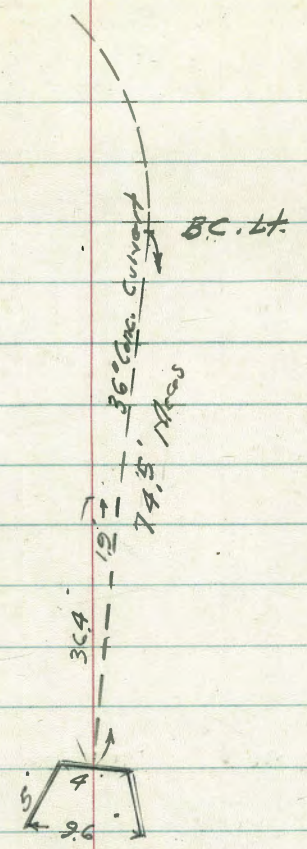 B.C. Lt.
36" Conc. Culvert
74.5' Meas
1.2'
36.4
4'
5'
9.6